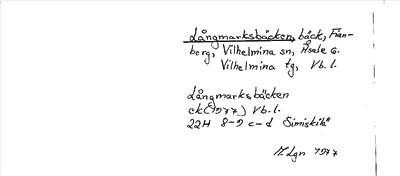 Långmarksbäcken, bäck, Fian-
berg, Vilhelmina sn, Åsele
Vilhelmina tg, Vb. l.
Långmarksbäcken
ek (1977) Vb. l.
22H 8-9 c-d
1977